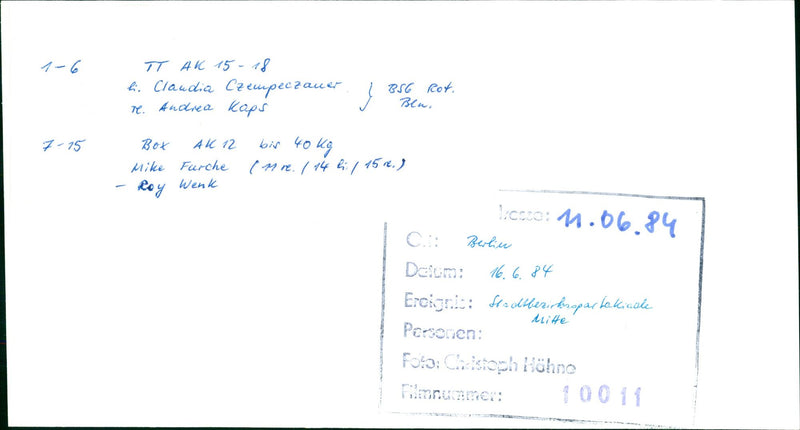 1-6 TT AK 15-18
li. Claudia Czempeczauer } BSG Rot.
re. Andrea Kaps Bln.
7-15 Box AK 12 bis 40 Kg
Mike Furche (11 re. / 14 li / 15 re.)
- Roy Wenk
11.06.84
Berlin
Datum: 16. 6. 84
Ereignis: Stadtbezirksspartakiade
Mitte
Personen:
Foto: Christoph Höhne
Filmnummer: 10011